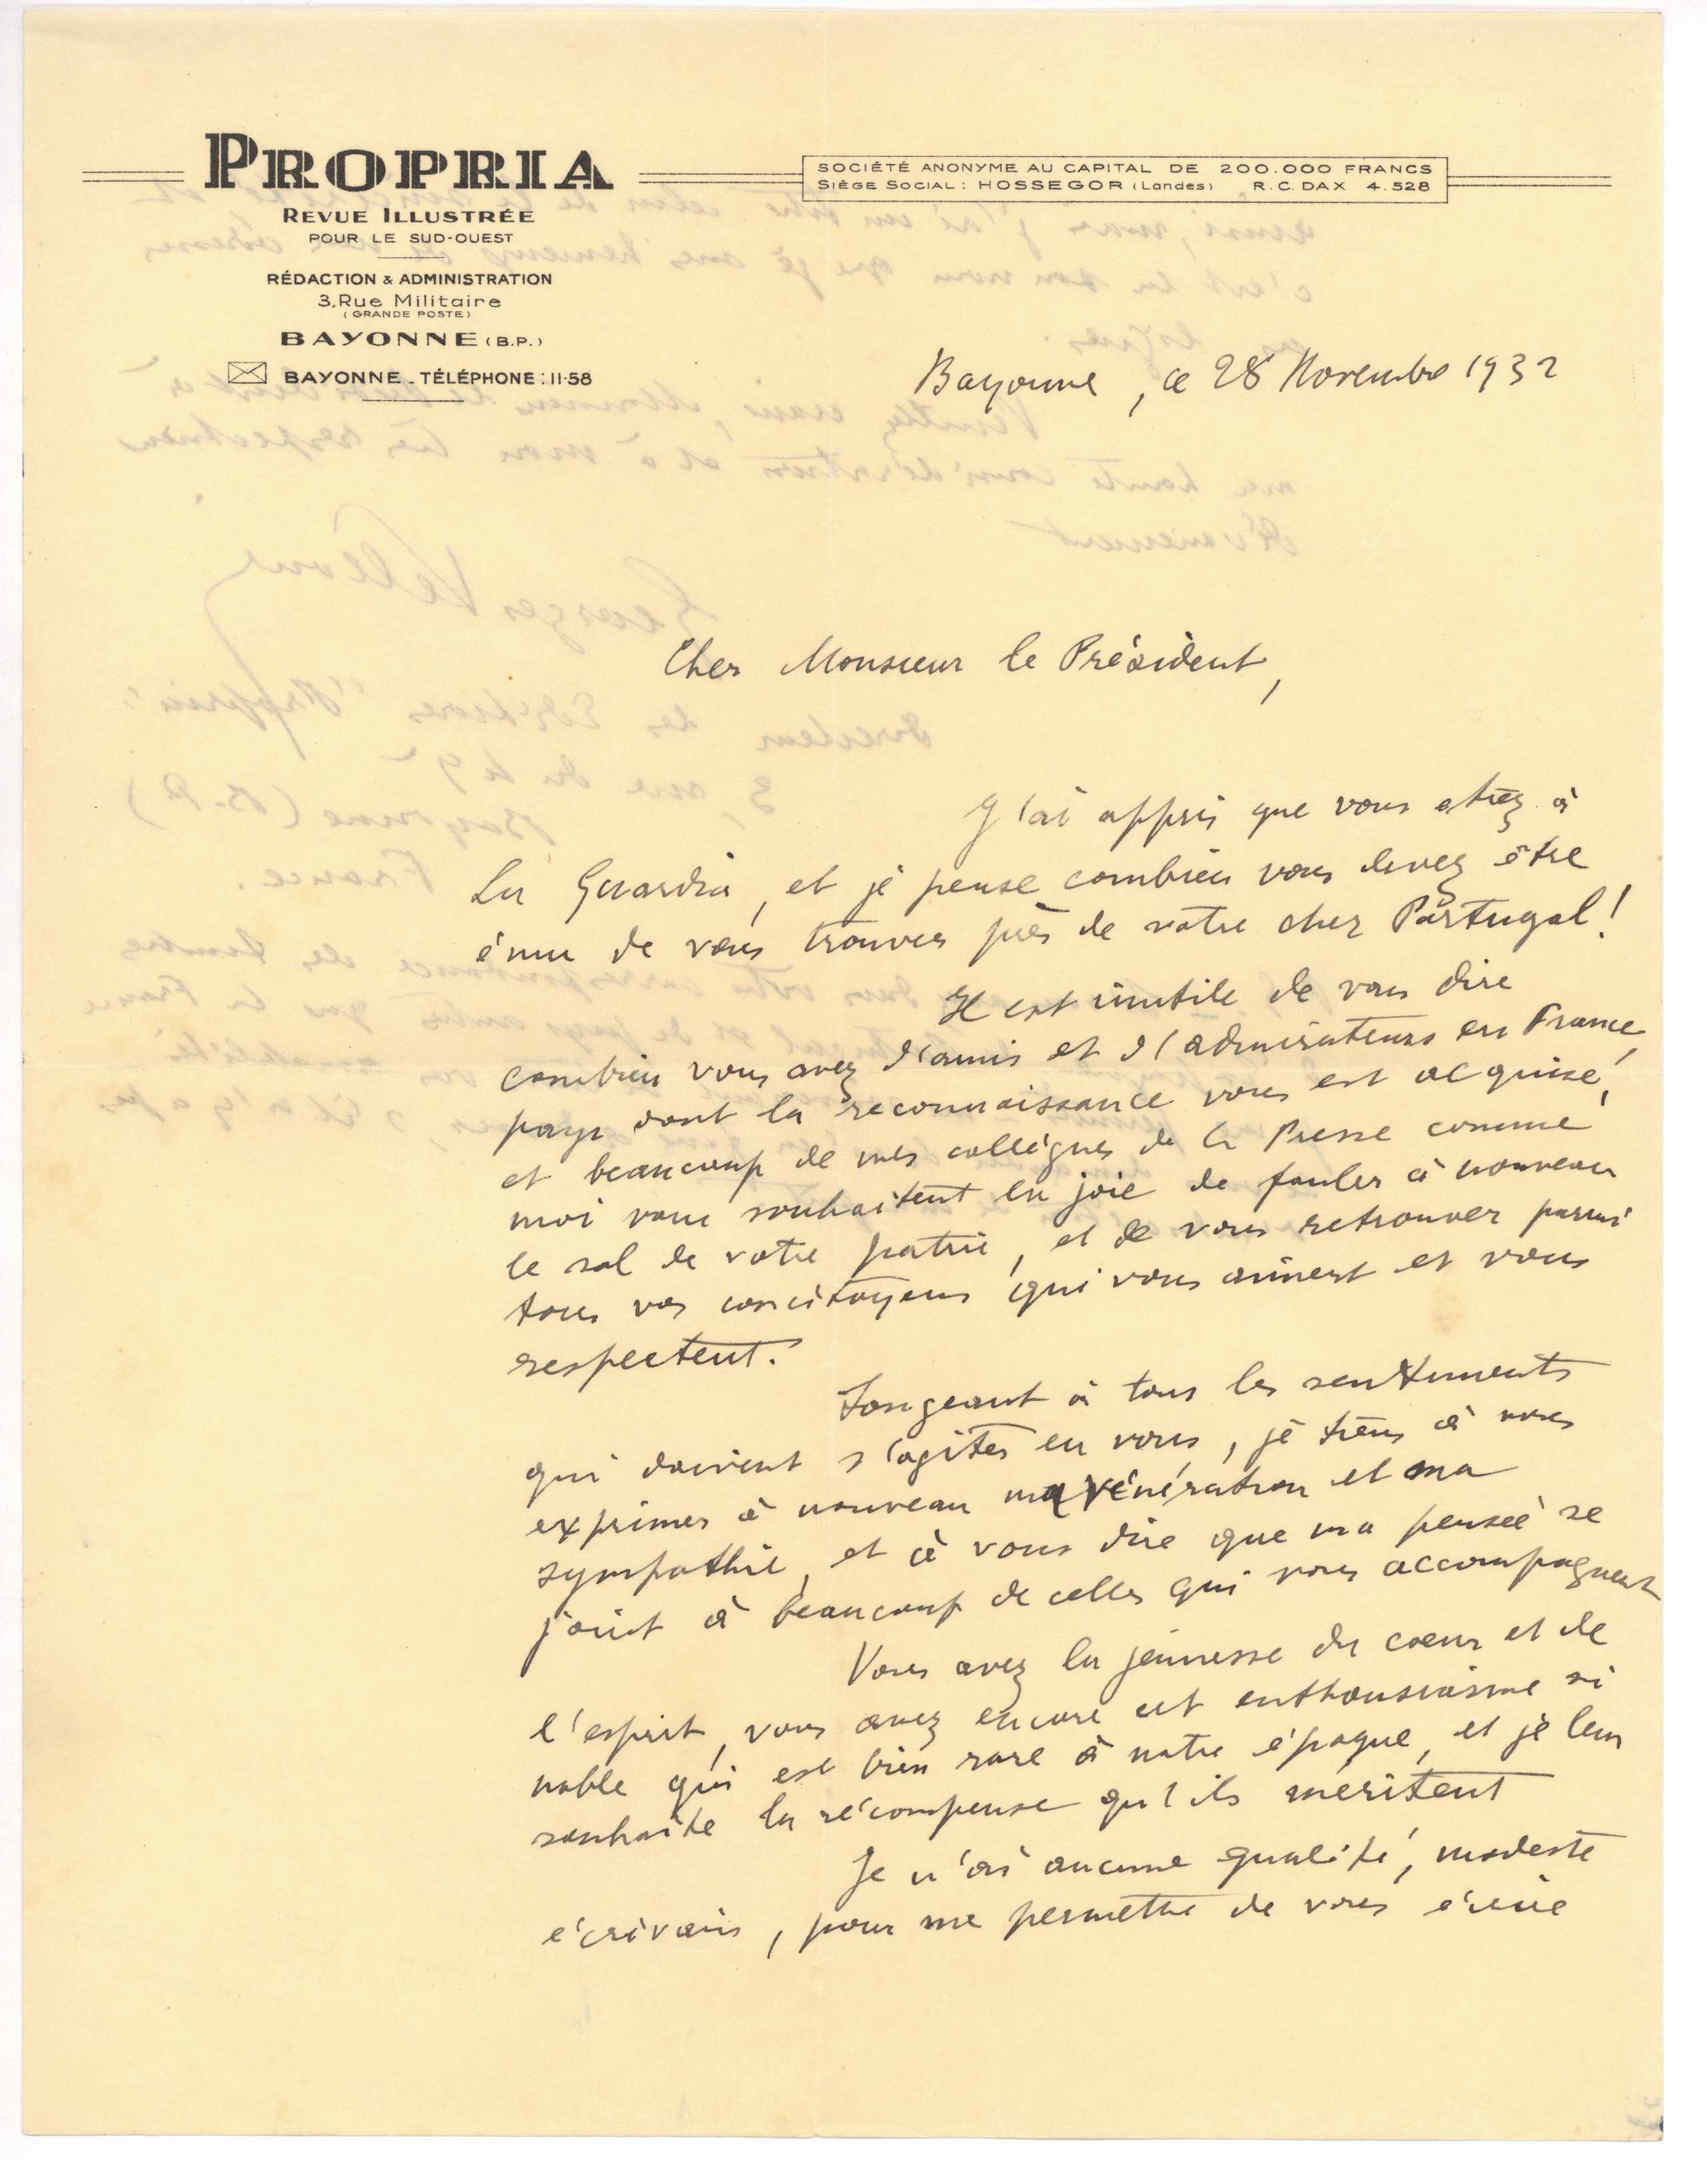 PROPRIA
REVUE ILLUSTRÉE
POUR LE SUD-OUEST
RÉDACTION & ADMINISTRATION
3, Rue Militaire
(GRANDE POSTE)
BAYONNE (B.P.)
BAYONNE - TÉLÉPHONE : 11-58
SOCIÉTÉ ANONYME AU CAPITAL DE 200.000 FRANCS
SIÈGE SOCIAL : HOSSEGOR (Landes) R.C. DAX 4.528
Bayonne, ce 28 Novembre 1932
Cher Monsieur le Président,
J'ai appris que vous etiez à
La Guardia, et je pense combien vous devez être
ému de vous trouver près de votre cher Portugal !
Il est inutile de vous dire
combien vous avez d'amis et d'admirateurs en France,
pays dont la reconnaissance vous est acquise,
et beaucoup de mes collègues de la Presse comme
moi vous souhaitent la joie de fouler à nouveau
le sol de votre patrie, et de vous retrouver parmi
tous vos concitoyens qui vous aiment et vous
respectent.
Songeant à tous les sentiments
qui doivent s'agiter en vous, je tiens à vous
exprimer à nouveau ma vénération et ma
sympathie, et à vous dire que ma pensée se
joint à beaucoup de celles qui vous accompagnent
Vous avez la jeunesse du coeur et de
l'esprit, vous avez encore cet enthousiasme si
noble qui est bien rare à notre époque, et je leur
souhaite la récompense qu'ils méritent
Je n'ai aucune qualité, modeste
écrivain, pour me permettre de vous écrire